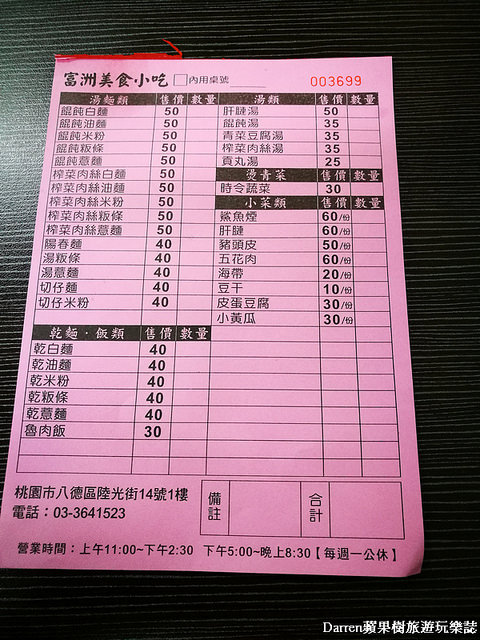 富洲美食小吃 □內用桌號 003699
湯麵類 售價 數量
餛飩白麵 50
餛飩油麵 50
餛飩米粉 50
餛飩粄條 50
餛飩薏麵 50
榨菜肉絲白麵 50
榨菜肉絲油麵 50
榨菜肉絲米粉 50
榨菜肉絲粄條 50
榨菜肉絲薏麵 50
陽春麵 40
湯粄條 40
湯薏麵 40
切仔麵 40
切仔米粉 40
乾麵・飯類 售價 數量
乾白麵 40
乾油麵 40
乾米粉 40
乾粄條 40
乾薏麵 40
魯肉飯 30
湯類 售價 數量
肝腱湯 50
餛飩湯 35
青菜豆腐湯 35
榨菜肉絲湯 35
貢丸湯 25
燙青菜 售價 數量
時令蔬菜 30
小菜類 售價 數量
鯊魚煙 60/份
肝腱 60/份
豬頭皮 50/份
五花肉 60/份
海帶 20/份
豆干 10/份
皮蛋豆腐 30/份
小黃瓜 30/份
桃園市八德區陸光街14號1樓
電話：03-3641523
備註
合計
營業時間：上午11:00~下午2:30 下午5:00~晚上8:30【每週一公休】
Darren蘋果樹旅遊玩樂誌